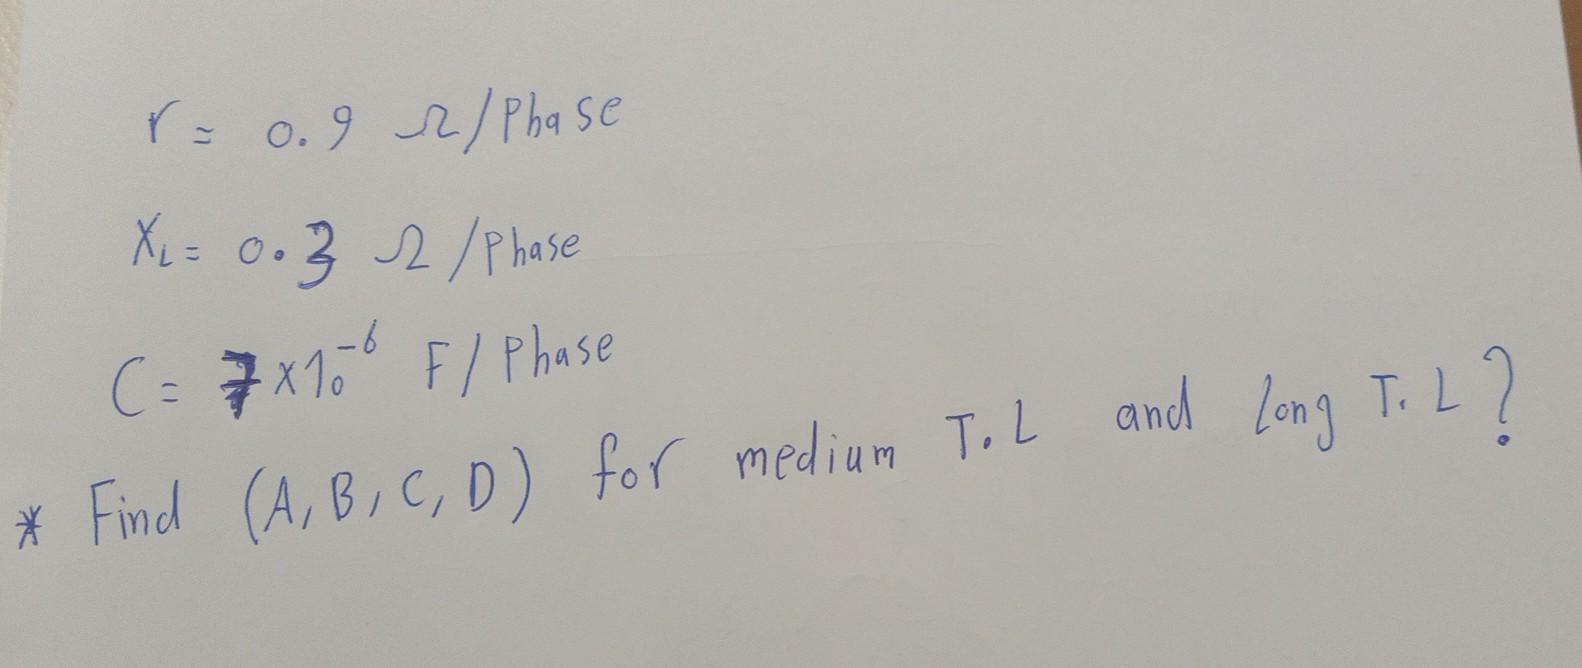 r = 0.9 Ω/Phase
XL = 0.3 Ω/Phase
C = 7x10⁻⁶ F/Phase
* Find (A, B, C, D) for medium T.L and long T.L?